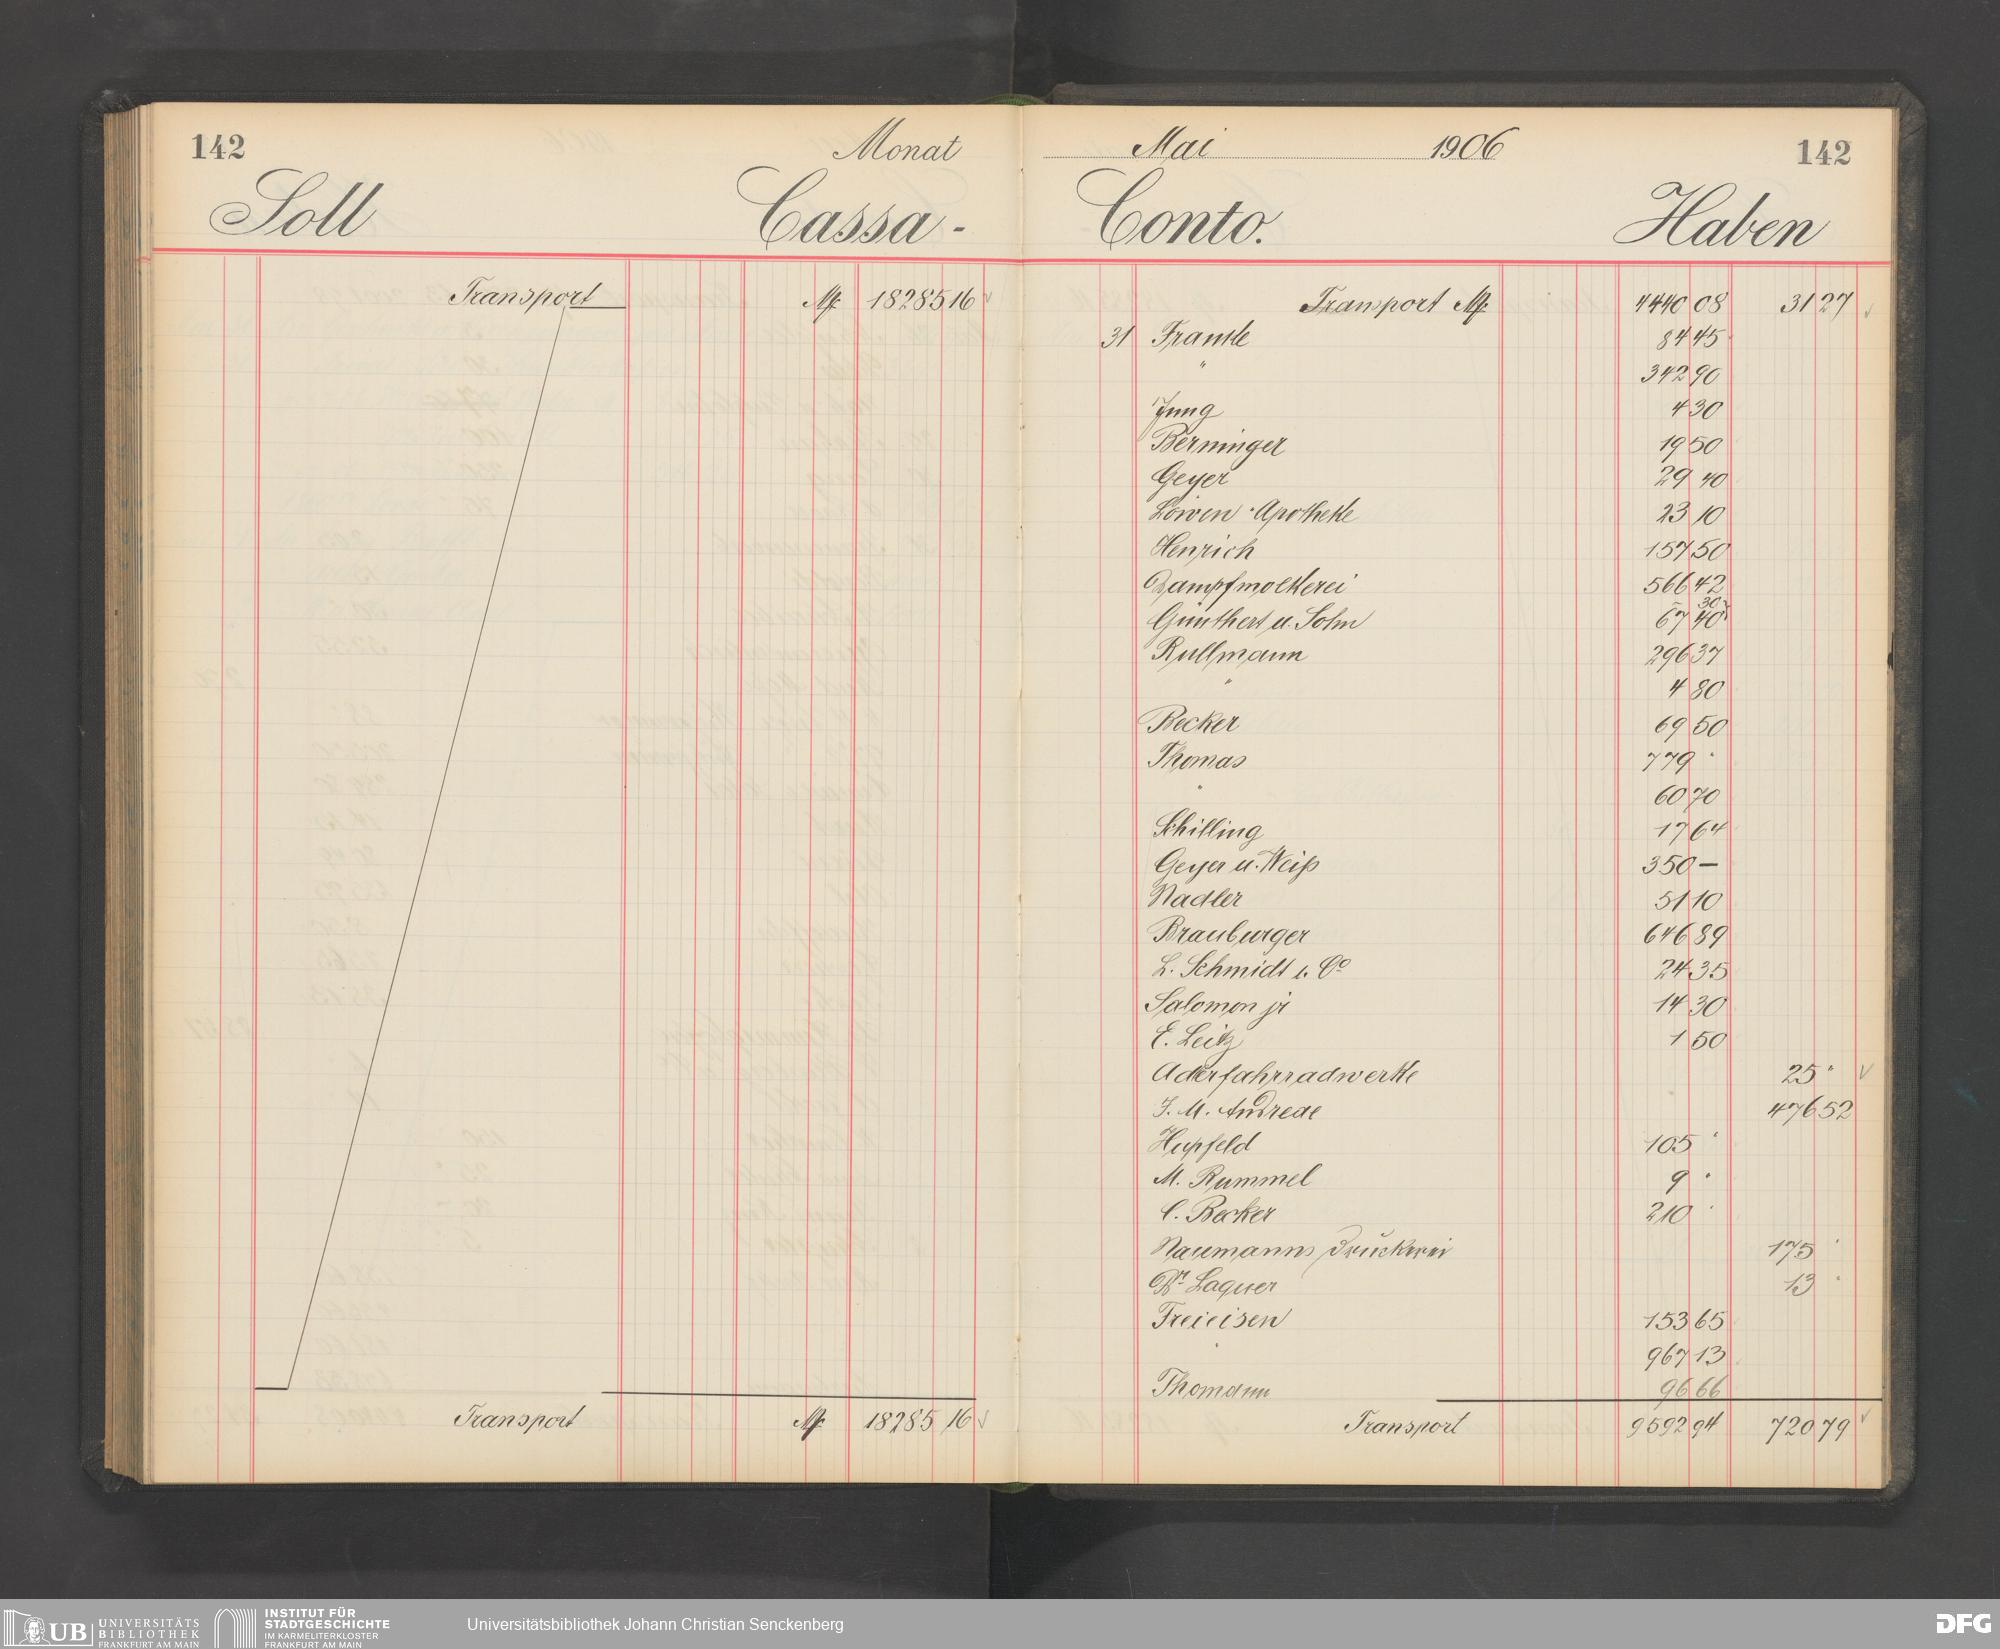 142
Monat
Soll
Cassa-
Transport M 18285 16
Transport M 18285 16
Mai 1906
142
Conto.
Haben
Transport M 4440 08 31 27
31 Franke 84 45
" 342 90
Jung 4 30
Berninger 19 50
Geyer 29 40
Löwen-Apotheke 23 10
Henrich 157 50
Dampfmolkerei 566 42
30
Günthert u. Sohn 67 40
Rullmann 296 37
" 4 80
Becker 69 50
Thomas 779 "
" 60 70
Schilling 17 64
Geyer u. Weiß 350 —
Nadler 51 10
Brauburger 646 89
L. Schmidt u. Co 24 35
Salomon jr 14 30
E. Leitz 1 50
Adlerfahrradwerke 25 "
J. M. Andreae 476 52
Hupfeld 105 "
M. Rummel 9 "
C. Becker 210 "
Naumanns Druckerei 175 "
Dr. Laquer 13 "
Freieisen 153 65
" 967 13
Thomann 96 66
Transport 9592 94 720 79
UB UNIVERSITÄTS
BIBLIOTHEK
FRANKFURT AM MAIN
INSTITUT FÜR
STADTGESCHICHTE
IM KARMELITERKLOSTER
FRANKFURT AM MAIN
Universitätsbibliothek Johann Christian Senckenberg
DFG